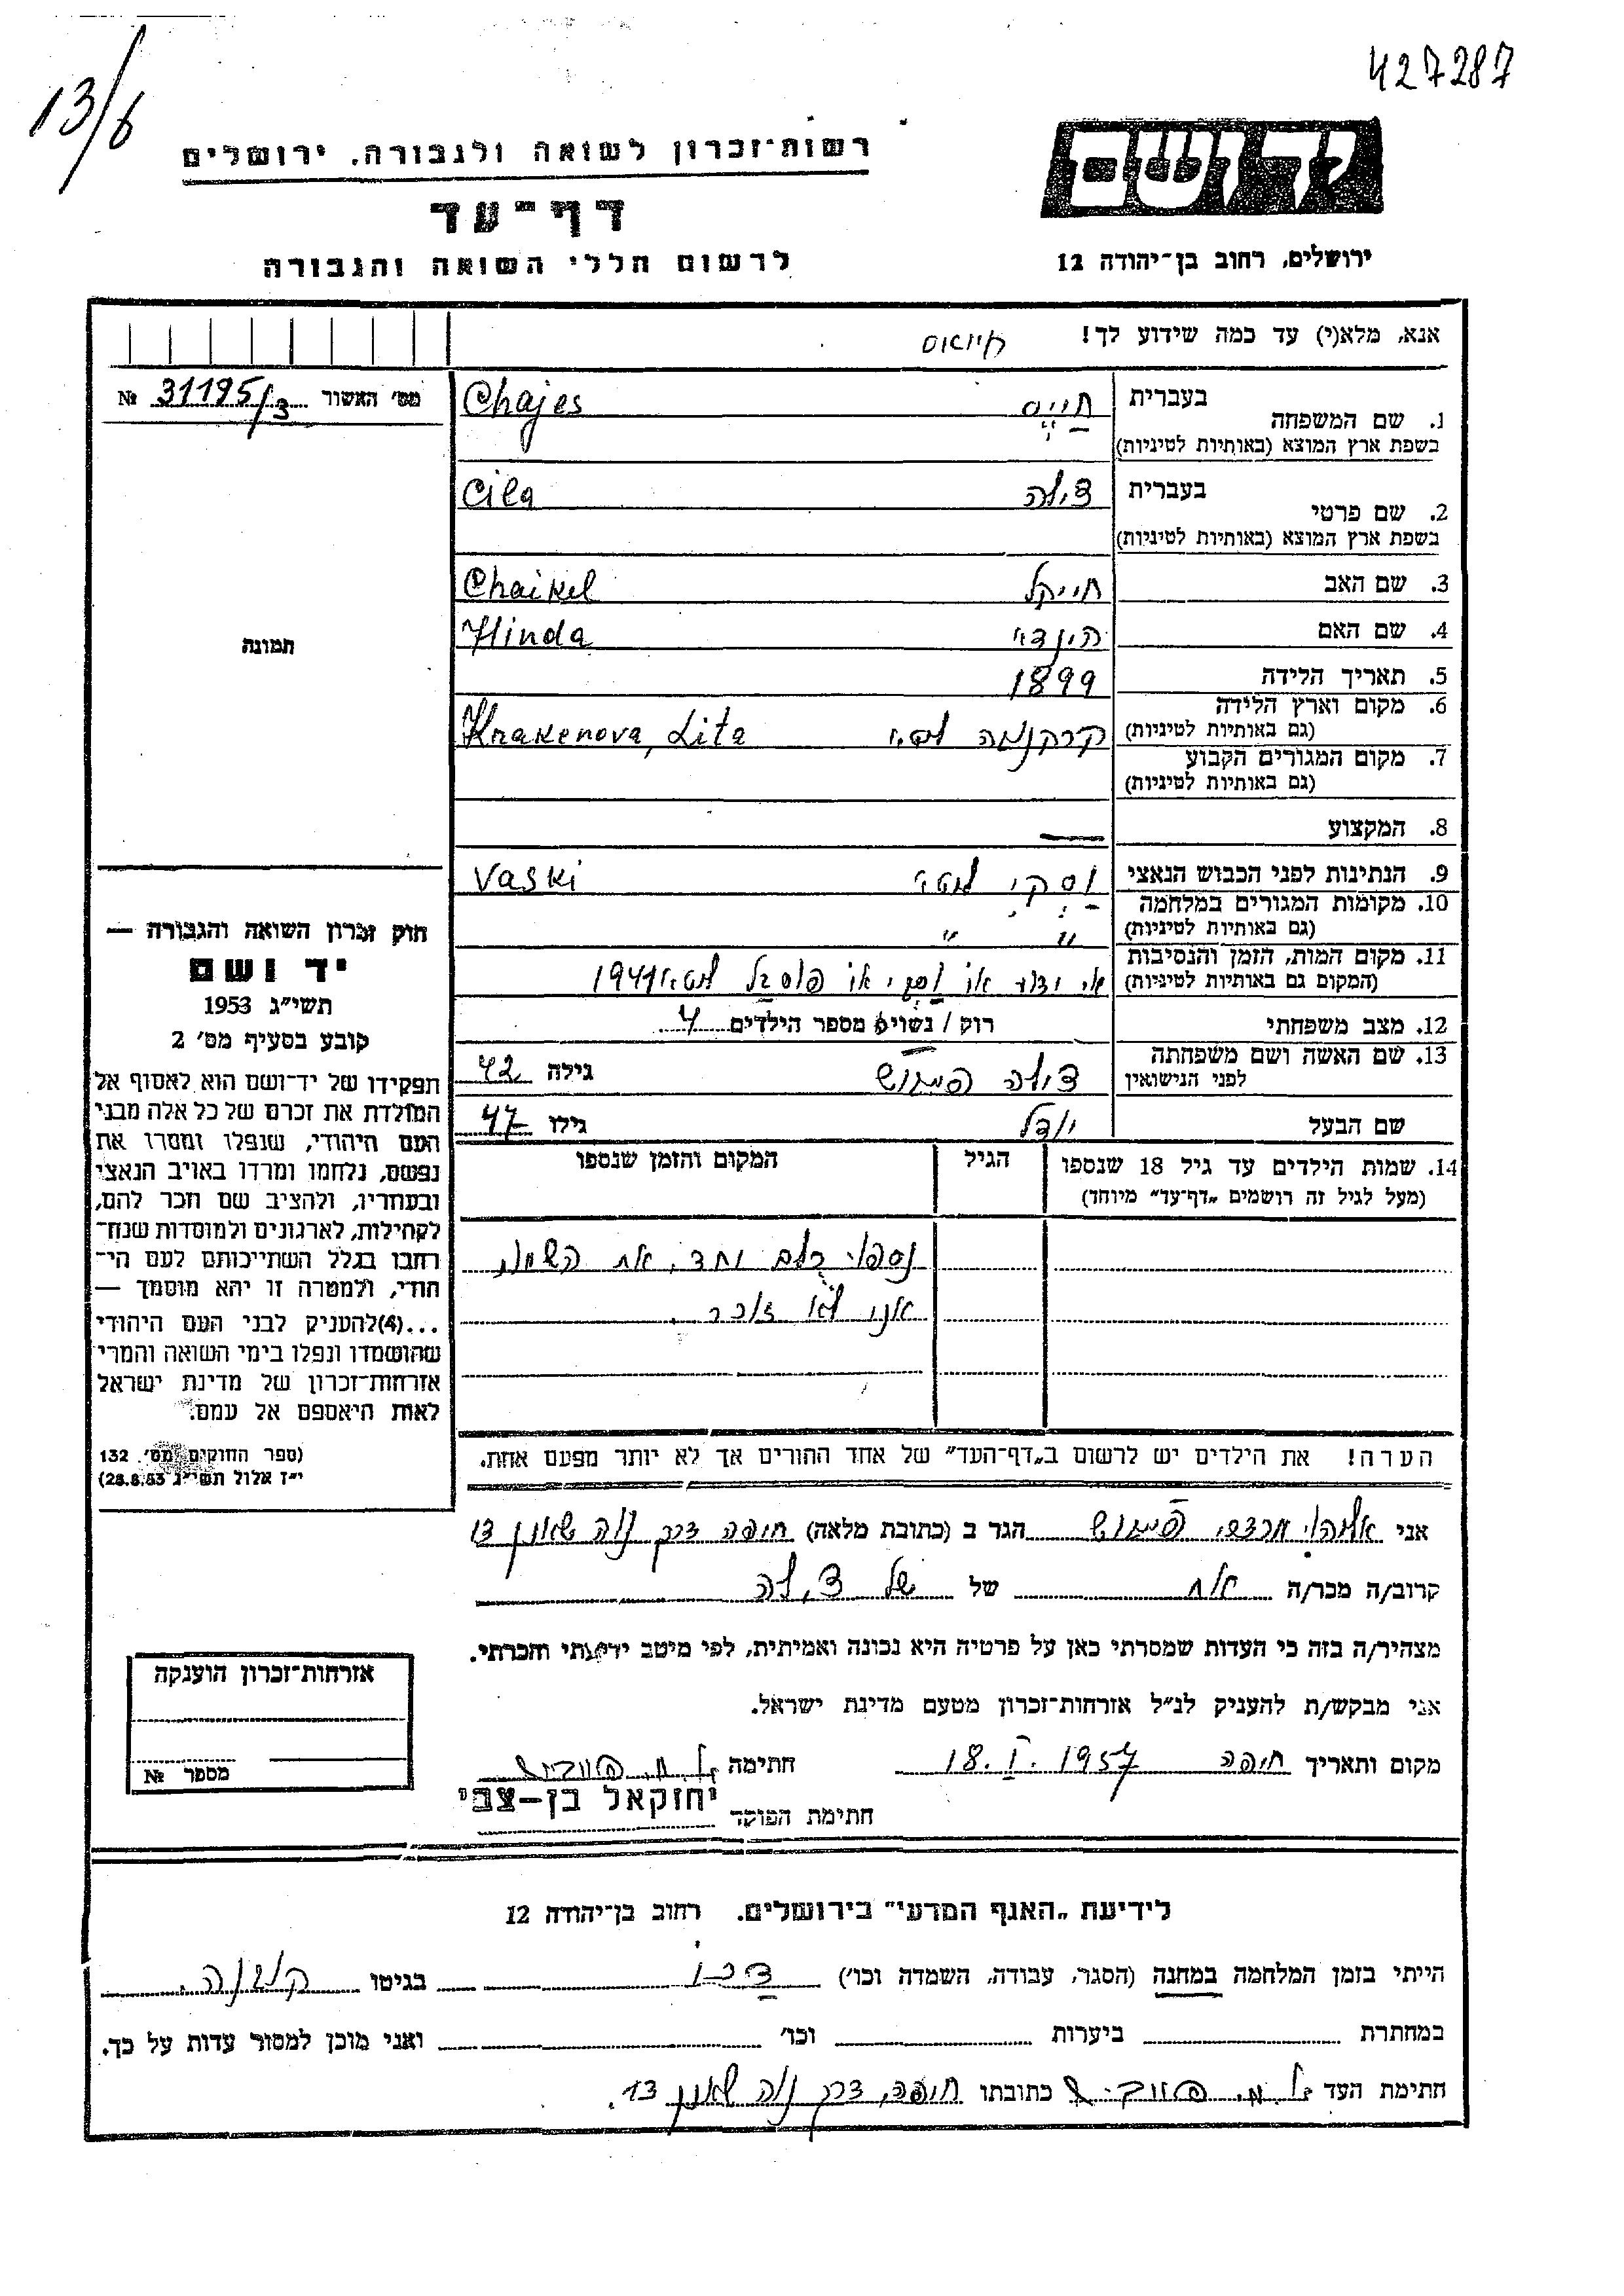 427287
13/6
רשות־זכרון לשואה ולגבורה, ירושלים
יד ושם
דף־עד
לרשום חללי השואה והגבורה
ירושלים, רחוב בן־יהודה 12
אנא, מלא(י) עד כמה שידוע לך!
מס׳ האשור 31195/3 №
תמונה
1. שם המשפחה בעברית חייס Chajes
בשפת ארץ המוצא (באותיות לטיניות)
2. שם פרטי בעברית צילה Cila
בשפת ארץ המוצא (באותיות לטיניות)
3. שם האב חייקל Chaikel
4. שם האם הינדי Hinda
5. תאריך הלידה 1899
6. מקום וארץ הלידה Krakenova, Lita
(גם באותיות לטיניות)
7. מקום המגורים הקבוע
(גם באותיות לטיניות)
8. המקצוע —
9. הנתינות לפני הכבוש הנאצי Vaski
10. מקומות המגורים במלחמה
(גם באותיות לטיניות) " "
11. מקום המות, הזמן והנסיבות
(המקום גם באותיות לטיניות) 1941
12. מצב משפחתי רוק / נשוי מספר הילדים 4
13. שם האשה ושם משפחתה צילה גילה 42
לפני הנישואין
שם הבעל יודל גילו 47
14. שמות הילדים עד גיל 18 שנספו הגיל המקום והזמן שנספו
(מעל לגיל זה רושמים „דף־עד״ מיוחד)
נספו כולם יחד, את השמות
אני לא זוכר.
הערה! את הילדים יש לרשום ב„דף־העד״ של אחד ההורים אך לא יותר מפעם אחת.
חוק זכרון השואה והגבורה —
יד ושם
תשי״ג 1953
קובע בסעיף מס׳ 2
תפקידו של יד־ושם הוא לאסוף אל
המולדת את זכרם של כל אלה מבני
העם היהודי, שנפלו ומסרו את
נפשם, נלחמו ומרדו באויב הנאצי
ובעוזריו, ולהציב שם וזכר להם,
לקהילות, לארגונים ולמוסדות שנח־
רחבו בגלל השתייכותם לעם הי־
הודי, ולמטרה זו יהא מוסמך —
...(4)להעניק לבני העם היהודי
שהושמדו ונפלו בימי השואה והמרי
אזרחות־זכרון של מדינת ישראל
לאות היאספם אל עמם.
(ספר החוקים מס׳ 132
י״ז אלול תשי״ג 28.8.53)
אני הגר ב (כתובת מלאה) חיפה דרך נוה שאנן 13
קרוב/ה מכר/ה אח של צילה
מצהיר/ה בזה כי העדות שמסרתי כאן על פרטיה היא נכונה ואמיתית, לפי מיטב ידיעתי והכרתי.
אני מבקש/ת להעניק לנ״ל אזרחות־זכרון מטעם מדינת ישראל.
מקום ותאריך חיפה 18. I. 1957 חתימה
חתימת הפוקד יחזקאל בן־צבי
אזרחות־זכרון הוענקה
מספר №
לידיעת „האגף המדעי״ בירושלים. רחוב בן־יהודה 12
הייתי בזמן המלחמה במחנה (הסגר, עבודה, השמדה וכו׳) דכו בגיטו קובנה.
במחתרת ביערות וכו׳ ואני מוכן למסור עדות על כך.
חתימת העד כתובתו חיפה, דרך נוה שאנן 13.